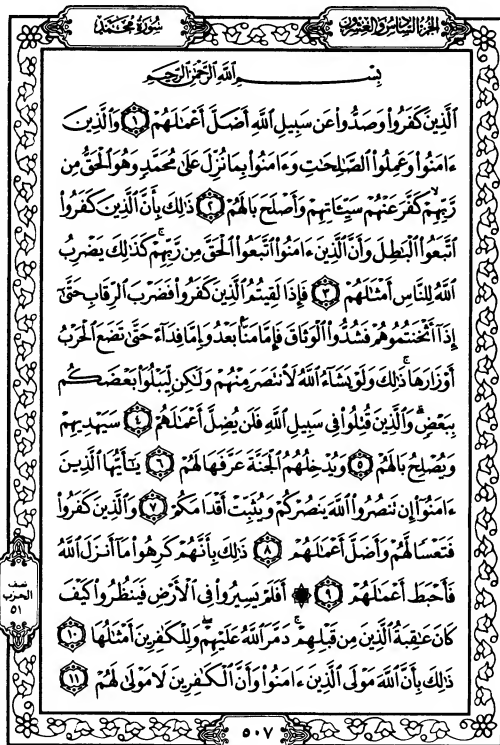 سُورَةُ مُحَمَّدٍ
الجزء السادس والعشرون
بِسْمِ ٱللَّهِ ٱلرَّحْمَٰنِ ٱلرَّحِيمِ
ٱلَّذِينَ كَفَرُوا۟ وَصَدُّوا۟ عَن سَبِيلِ ٱللَّهِ أَضَلَّ أَعْمَٰلَهُمْ ١ وَٱلَّذِينَ
ءَامَنُوا۟ وَعَمِلُوا۟ ٱلصَّٰلِحَٰتِ وَءَامَنُوا۟ بِمَا نُزِّلَ عَلَىٰ مُحَمَّدٍ وَهُوَ ٱلْحَقُّ مِن
رَّبِّهِمْ ۙ كَفَّرَ عَنْهُمْ سَيِّـَٔاتِهِمْ وَأَصْلَحَ بَالَهُمْ ٢ ذَٰلِكَ بِأَنَّ ٱلَّذِينَ كَفَرُوا۟
ٱتَّبَعُوا۟ ٱلْبَٰطِلَ وَأَنَّ ٱلَّذِينَ ءَامَنُوا۟ ٱتَّبَعُوا۟ ٱلْحَقَّ مِن رَّبِّهِمْ ۚ كَذَٰلِكَ يَضْرِبُ
ٱللَّهُ لِلنَّاسِ أَمْثَٰلَهُمْ ٣ فَإِذَا لَقِيتُمُ ٱلَّذِينَ كَفَرُوا۟ فَضَرْبَ ٱلرِّقَابِ حَتَّىٰٓ
إِذَآ أَثْخَنتُمُوهُمْ فَشُدُّوا۟ ٱلْوَثَاقَ فَإِمَّا مَنًّۢا بَعْدُ وَإِمَّا فِدَآءً حَتَّىٰ تَضَعَ ٱلْحَرْبُ
أَوْزَارَهَا ۚ ذَٰلِكَ وَلَوْ يَشَآءُ ٱللَّهُ لَٱنتَصَرَ مِنْهُمْ وَلَٰكِن لِّيَبْلُوَا۟ بَعْضَكُم
بِبَعْضٍ ۗ وَٱلَّذِينَ قُتِلُوا۟ فِى سَبِيلِ ٱللَّهِ فَلَن يُضِلَّ أَعْمَٰلَهُمْ ٤ سَيَهْدِيهِمْ
وَيُصْلِحُ بَالَهُمْ ٥ وَيُدْخِلُهُمُ ٱلْجَنَّةَ عَرَّفَهَا لَهُمْ ٦ يَٰٓأَيُّهَا ٱلَّذِينَ
ءَامَنُوٓا۟ إِن تَنصُرُوا۟ ٱللَّهَ يَنصُرْكُمْ وَيُثَبِّتْ أَقْدَامَكُمْ ٧ وَٱلَّذِينَ كَفَرُوا۟
فَتَعْسًا لَّهُمْ وَأَضَلَّ أَعْمَٰلَهُمْ ٨ ذَٰلِكَ بِأَنَّهُمْ كَرِهُوا۟ مَآ أَنزَلَ ٱللَّهُ
فَأَحْبَطَ أَعْمَٰلَهُمْ ٩ ۞ أَفَلَمْ يَسِيرُوا۟ فِى ٱلْأَرْضِ فَيَنظُرُوا۟ كَيْفَ
كَانَ عَٰقِبَةُ ٱلَّذِينَ مِن قَبْلِهِمْ ۚ دَمَّرَ ٱللَّهُ عَلَيْهِمْ ۖ وَلِلْكَٰفِرِينَ أَمْثَٰلُهَا ١٠
ذَٰلِكَ بِأَنَّ ٱللَّهَ مَوْلَى ٱلَّذِينَ ءَامَنُوا۟ وَأَنَّ ٱلْكَٰفِرِينَ لَا مَوْلَىٰ لَهُمْ ١١
نصف
الحزب
٥١
٥٠٧